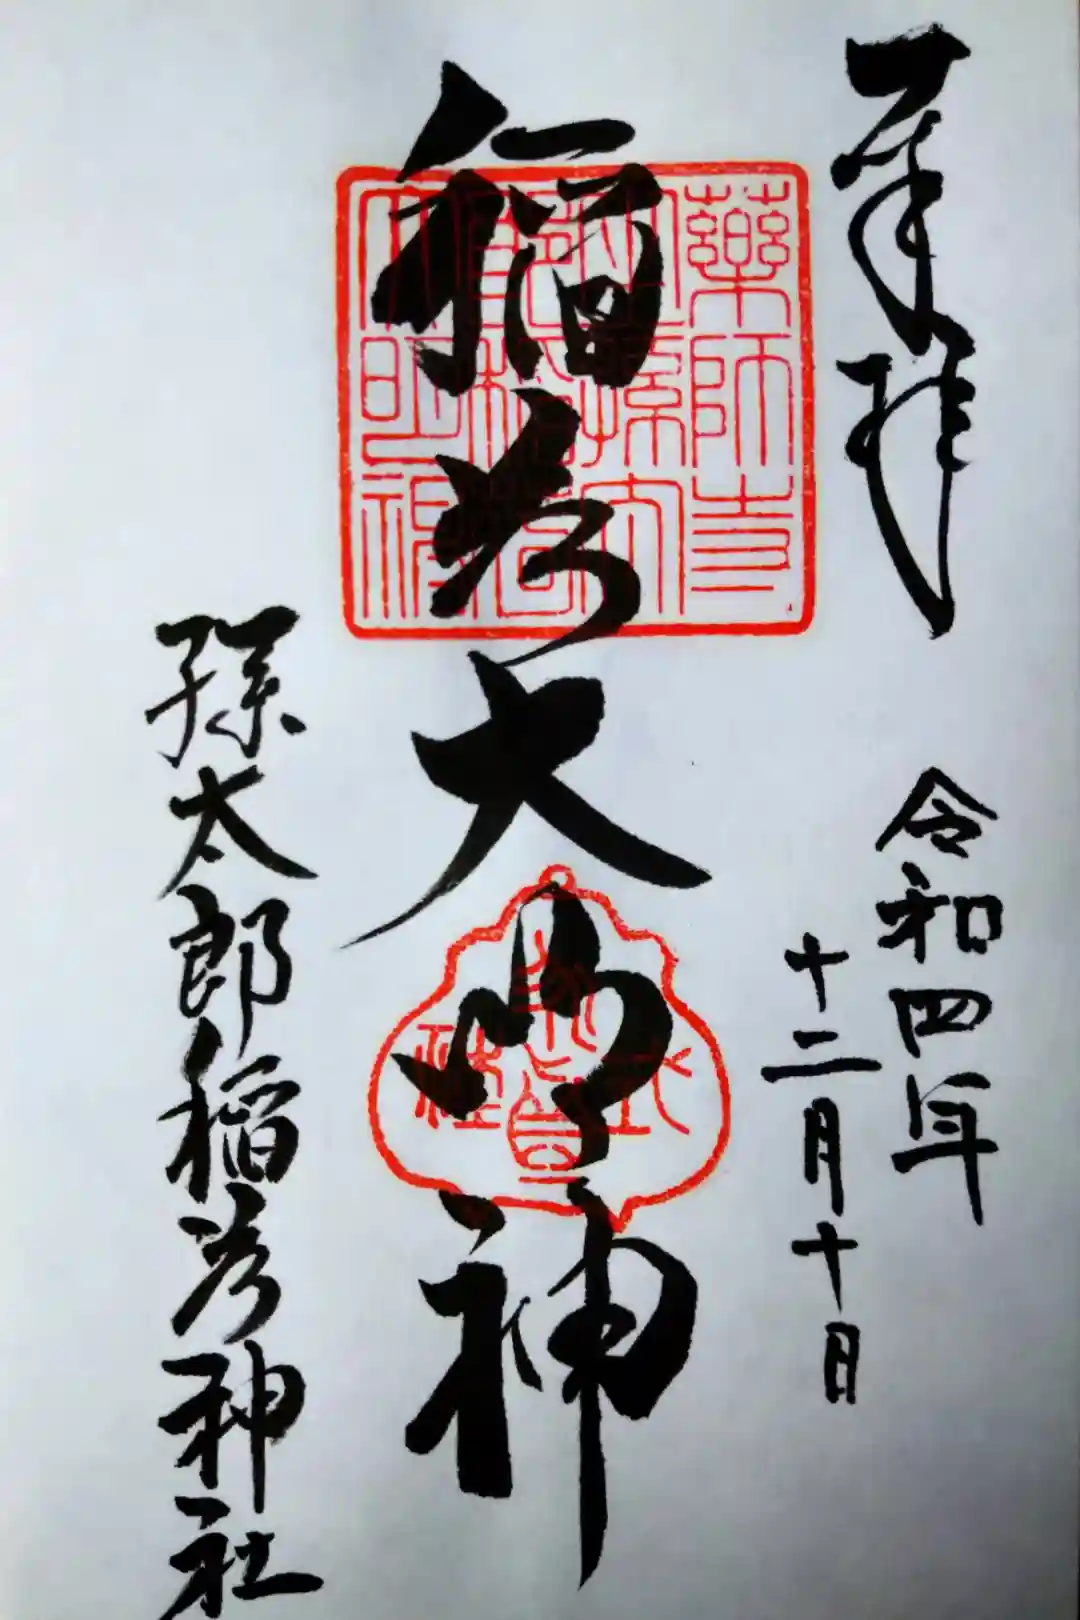 奉拝
令和四年
十二月十日
稲荷大明神
孫太郎稲荷神社
薬師寺